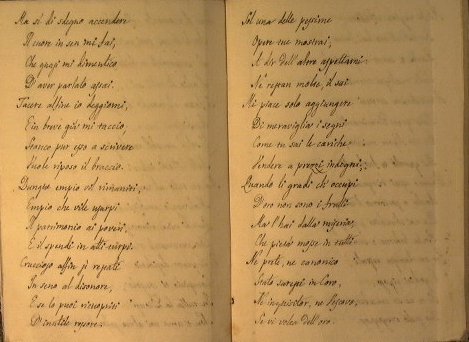 Ma sì di sdegno accendere
Il cuore in sen mi fai,
Che quasi mi dimentico
D'aver parlato assai.
Tacere alfine io deggiomi,
E in breve già mi taccio,
Stanco pur esso a scrivere
Vuole riposo il braccio.
Dunque empio vò rimanivi,
Empio che vile usurpi
Il patrimonio ai poveri,
E il spendi in atti turpi.
Cruccioso alfin ti
In seno al disonore,
E se lo puoi
D'inutile
Sol una delle pessime
Opere tue mostrai,
A dir dell'altre aspettarmi
Nè restan molte, il sai
Mi piace solo aggiungere
Di meraviglia i segni
Come tu sai le cariche
Vendere a prezzi indegni,
Quando li gradi ch'occupi
D'oro non sono i frutti
Ma l'hai dalla miseria,
Che pietà mosse in tutti.
Nè prete, ne canonico
Stato saresti in Coro,
Ne inquisitor, ne Vescovo,
Se vi volea dell'oro